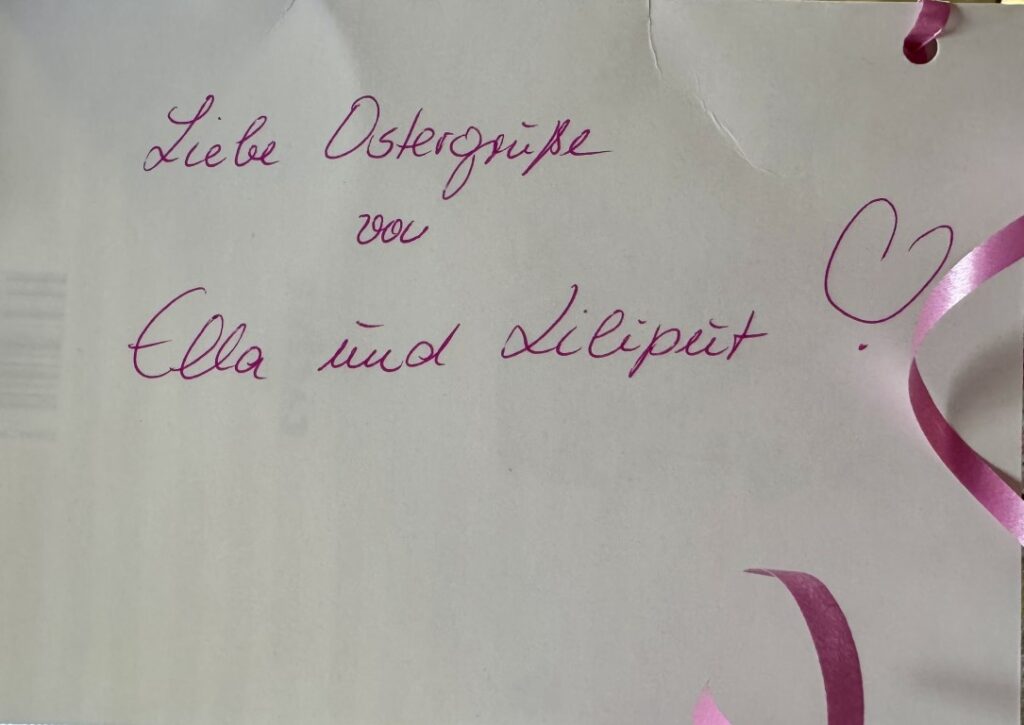 Liebe Ostergrüße
von
Ella und Liliput